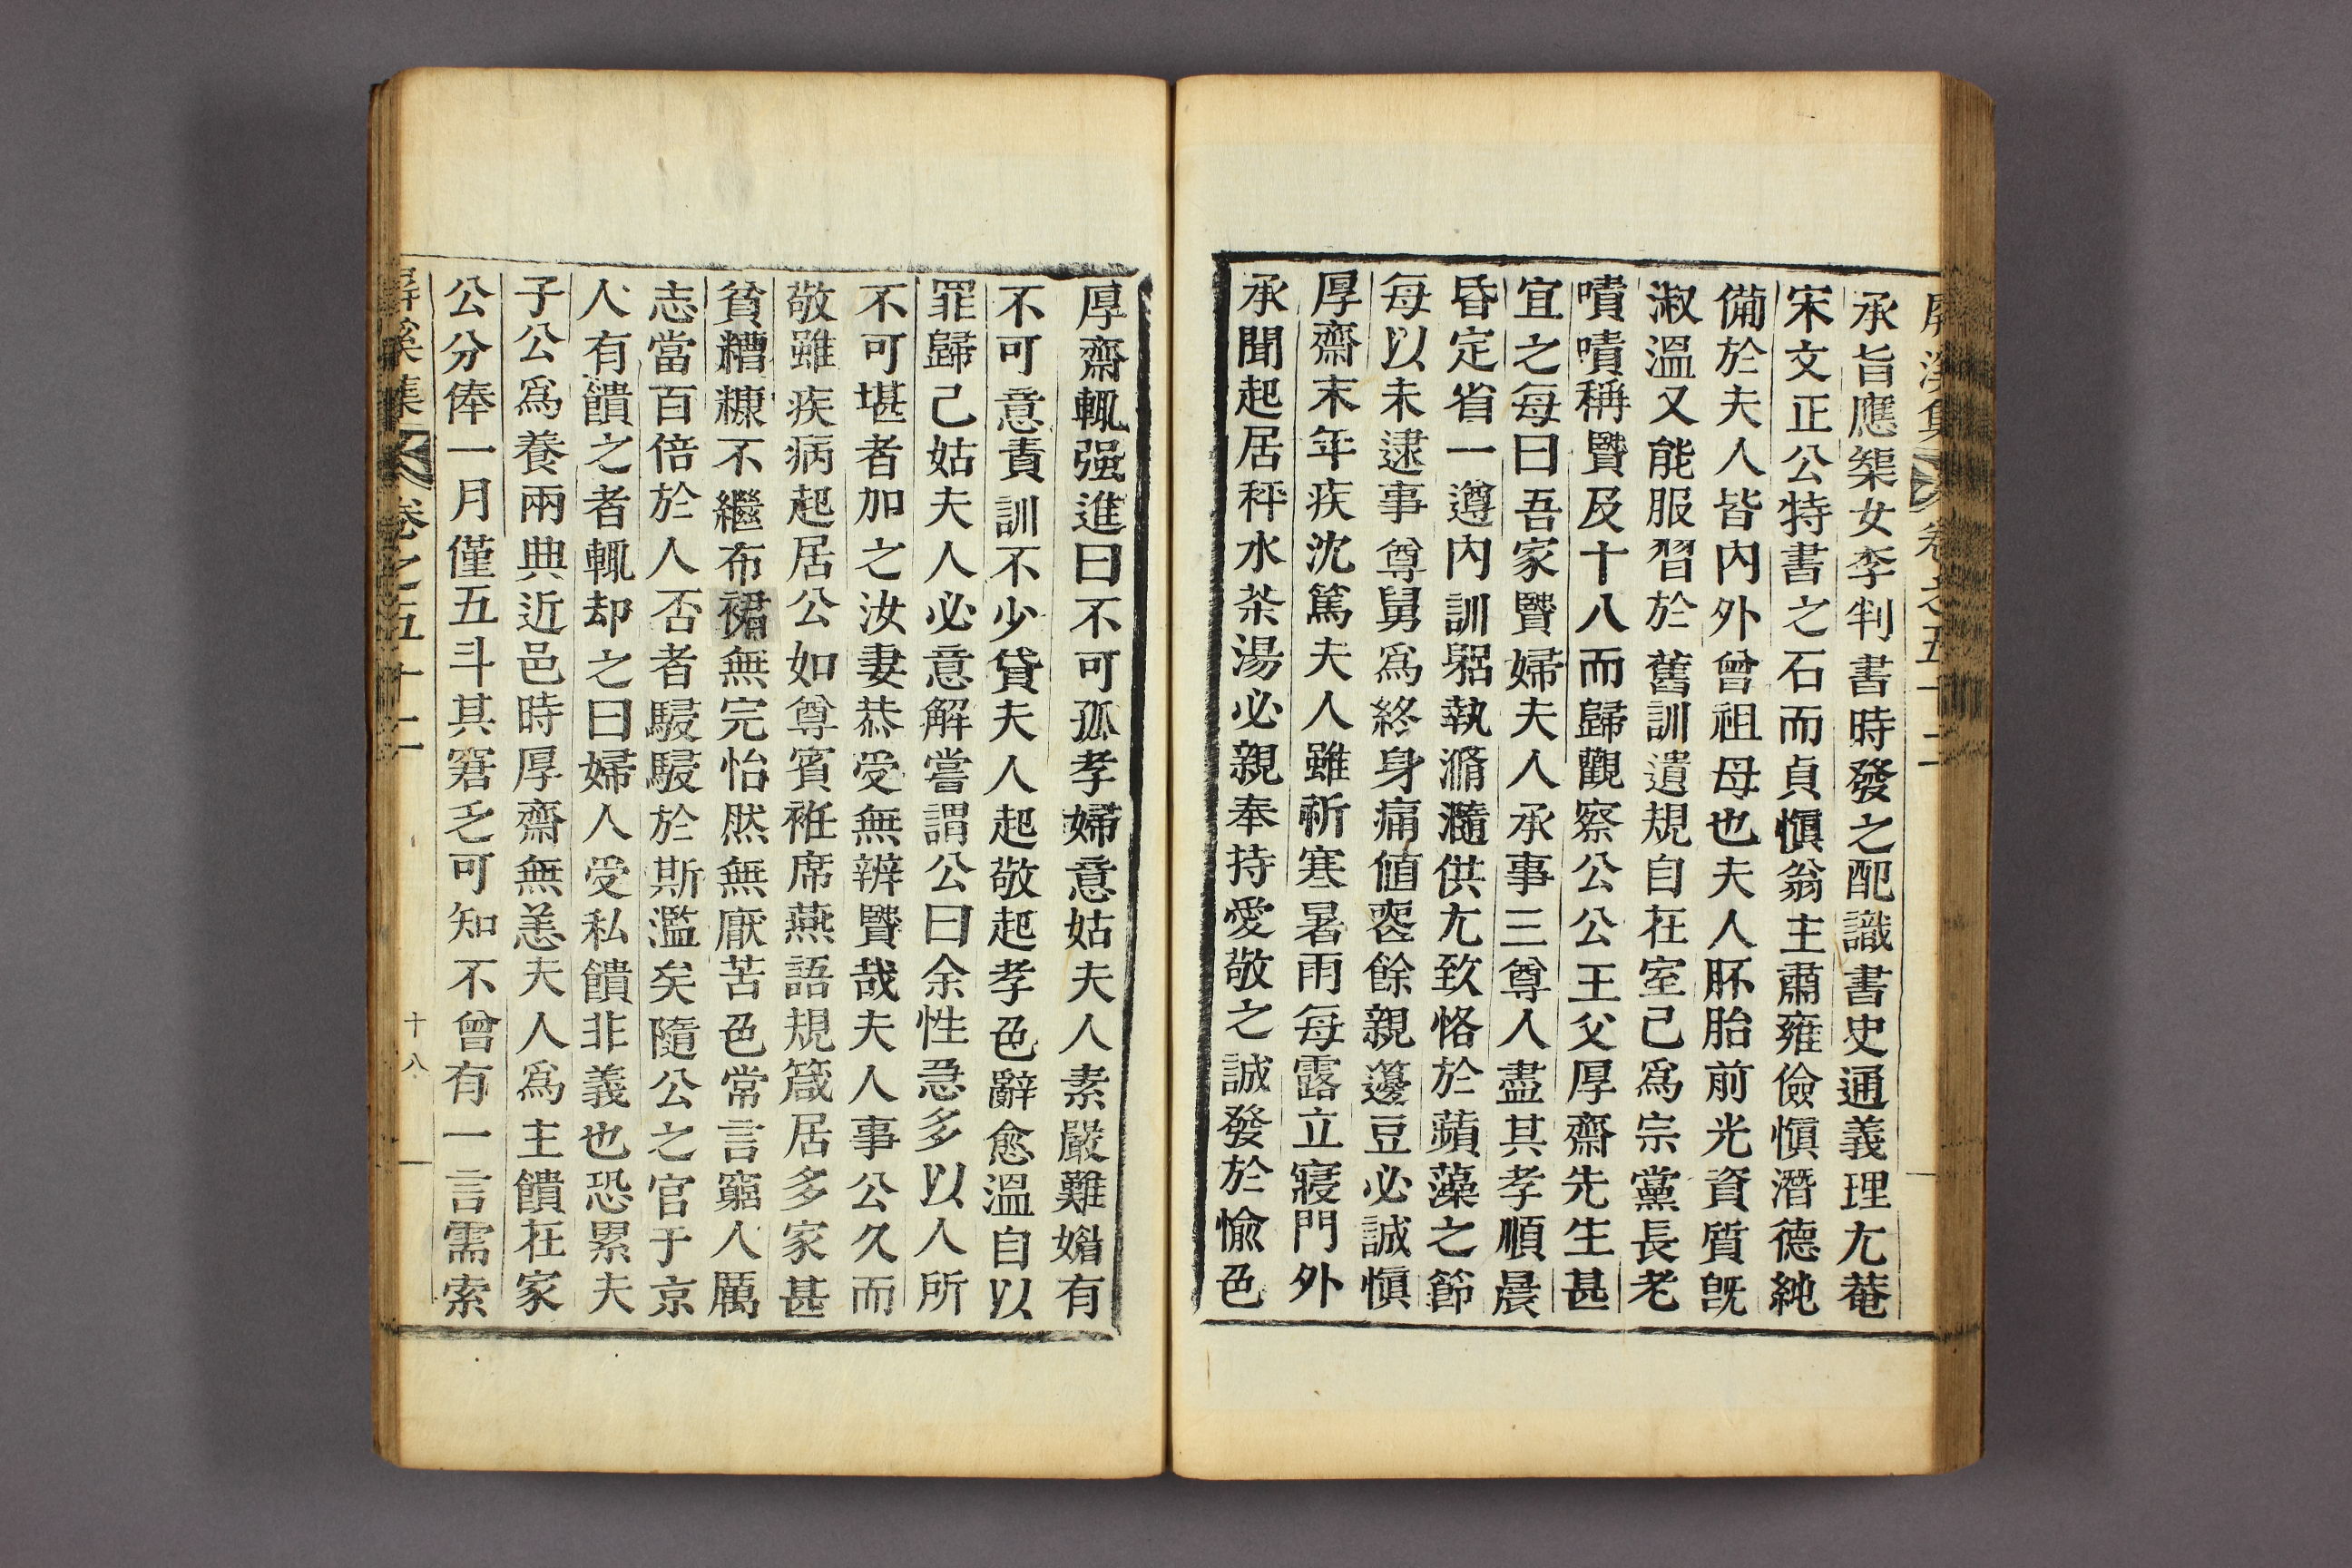 屛溪集 卷之五十二
承旨應榘女李判書時發之配識書史通義理尤菴
宋文正公特書之石而貞愼翁主肅雍儉愼潛德純
備於夫人皆內外曾祖母也夫人胚胎前光資質旣
淑溫又能服習於舊訓遺規自在室已爲宗黨長老
嘖嘖稱賢及十八而歸觀察公公王父厚齋先生甚
宜之每曰吾家賢婦夫人承事三尊人盡其孝順晨
昏定省一遵內訓躬執滫瀡供尤致恪於蘋藻之節
每以未逮事尊舅爲終身痛値喪餘親籩豆必誠愼
厚齋末年疾沈篤夫人雖祈寒暑雨每露立寢門外
承聞起居秤水茶湯必親奉持愛敬之誠發於愉色
厚齋輒强進曰不可孤孝婦意姑夫人素嚴難媚有
不可意責訓不少貸夫人起敬起孝色辭愈溫自以
罪歸己姑夫人必意解嘗謂公曰余性急多以人所
不可堪者加之汝妻恭受無辨賢哉夫人事公久而
敬雖疾病起居公如尊賓袵席燕語規箴居多家甚
貧糟糠不繼布裙無完怡然無厭苦色常言窮人厲
志當百倍於人否者駸駸於斯濫矣隨公之官于京
人有饋之者輒却之曰婦人受私饋非義也恐累夫
子公爲養兩典近邑時厚齋無恙夫人爲主饋在家
公分俸一月僅五斗其窘乏可知不曾有一言需索
屛溪集 卷之五十二
十八